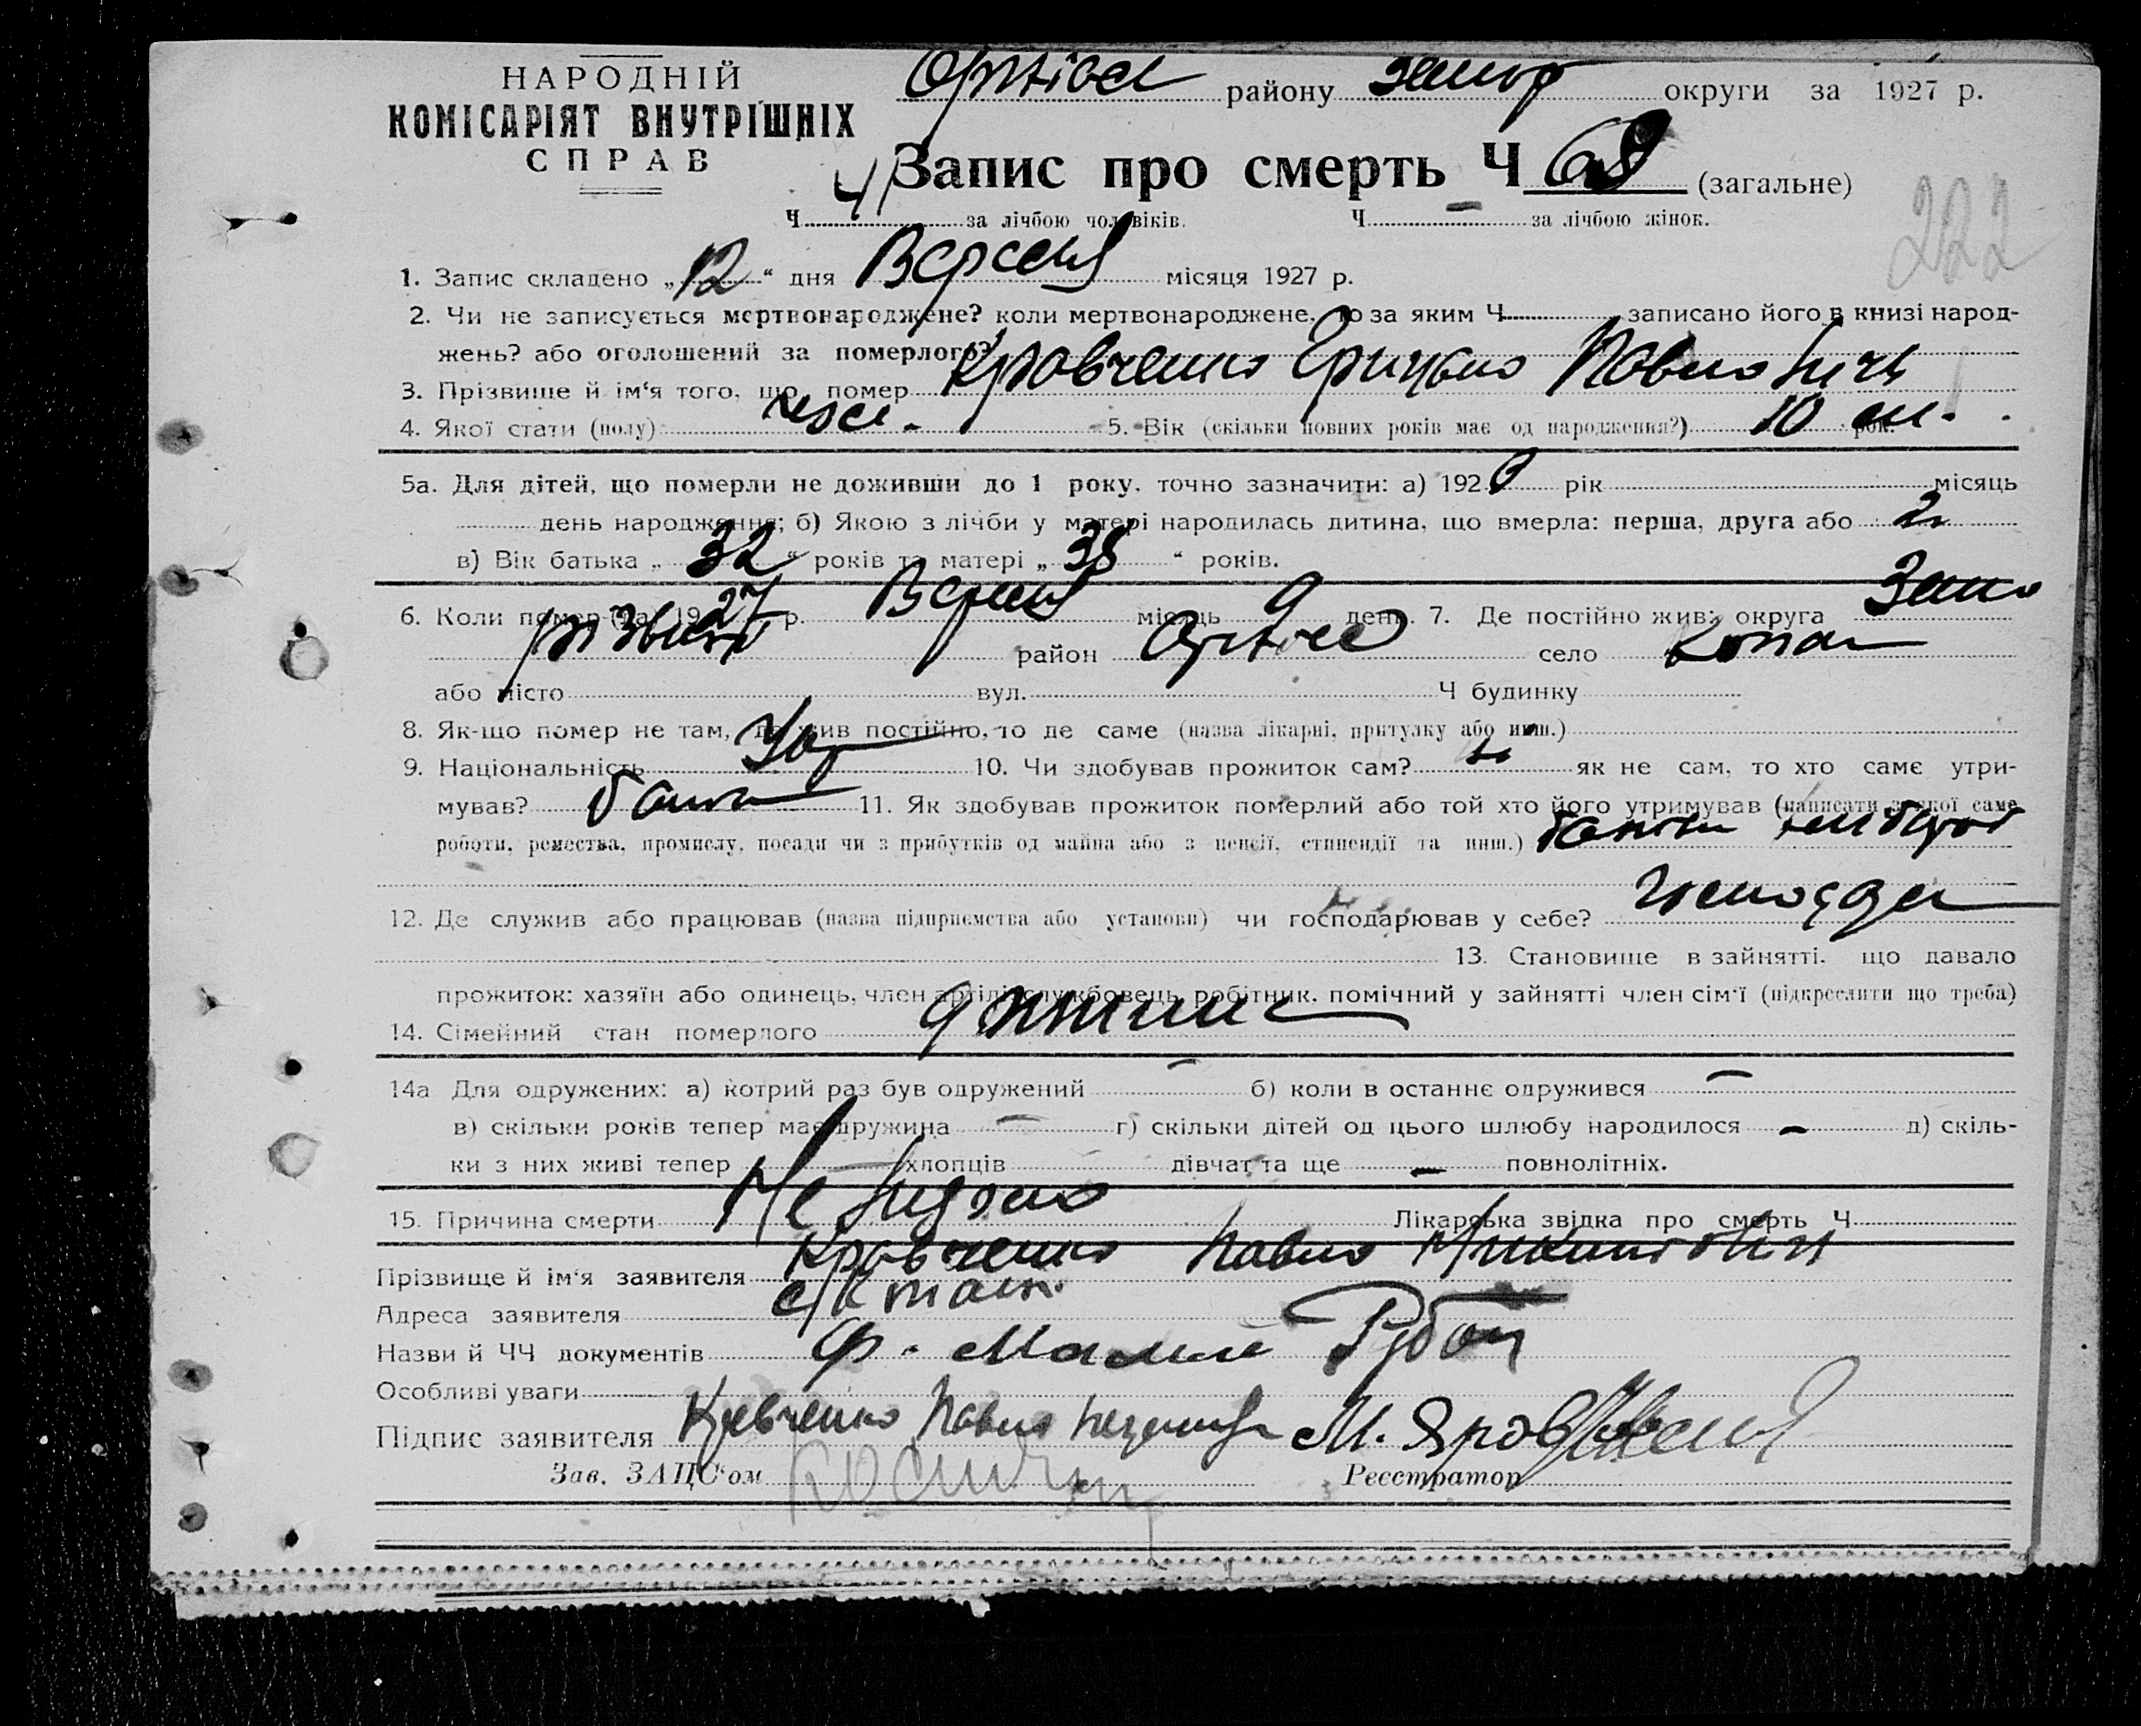 НАРОДНІЙ
КОМІСАРІЯТ ВНУТРІШНІХ
СПРАВ
району округи за 1927 р.
Запис про смерть Ч 68 (загальне)
Ч. 41 за лічбою чоловіків. Ч. – за лічбою жінок.
222
1. Запис складено „12“ дня Вересня місяця 1927 р.
2. Чи не записується мертвонароджене? коли мертвонароджене, то за яким Ч. записано його в книзі народ-
жень? або оголошений за померлого?
3. Прізвище й ім'я того, що помер Кравченко Грицько Павлович
4. Якої стати (полу) 5. Вік (скільки повних років має од народження?) 10 рок.
5а. Для дітей, що померли не доживши до 1 року, точно зазначити: а) 192 рік місяць
день народження; б) Якою з лічби у матері народилась дитина, що вмерла: перша, друга або 2
в) Вік батька „32“ років та матері „38“ років.
6. Коли помер (ла) 1927 р. Вересня місяць 9 день. 7. Де постійно жив: округа
район село Копан
або місто вул. Ч будинку
8. Як-що помер не там, де жив постійно, то де саме (назва лікарні, притулку або инш.)
9. Національність Укр 10. Чи здобував прожиток сам? як не сам, то хто саме утри-
мував? батько 11. Як здобував прожиток померлий або той хто його утримував (написати з якої саме
роботи, ремества, промислу, посади чи з прибутків од майна або з пенсії, стипендії та инш.)
12. Де служив або працював (назва підприємства або установи) чи господарював у себе?
13. Становище в зайнятті, що давало
прожиток: хазяїн або одинець, член артілі, службовець, робітник, помічний у зайнятті член сім'ї (підкреслити що треба)
14. Сімейний стан померлого дитина
14а Для одружених: а) котрий раз був одружений – б) коли в останнє одружився –
в) скільки років тепер має дружина – г) скільки дітей од цього шлюбу народилося – д) скіль-
ки з них живі тепер хлопців дівчат та ще – повнолітніх.
15. Причина смерти Не видомо Лікарська звідка про смерть Ч.
Прізвище й ім'я заявителя Кравченко Павло Микитович
Адреса заявителя с/Копани
Назви й ЧЧ документів
Особливі уваги
Підпис заявителя Кравченко Павло М. Яровий
Зав. ЗАЦС'ом Реєстратор